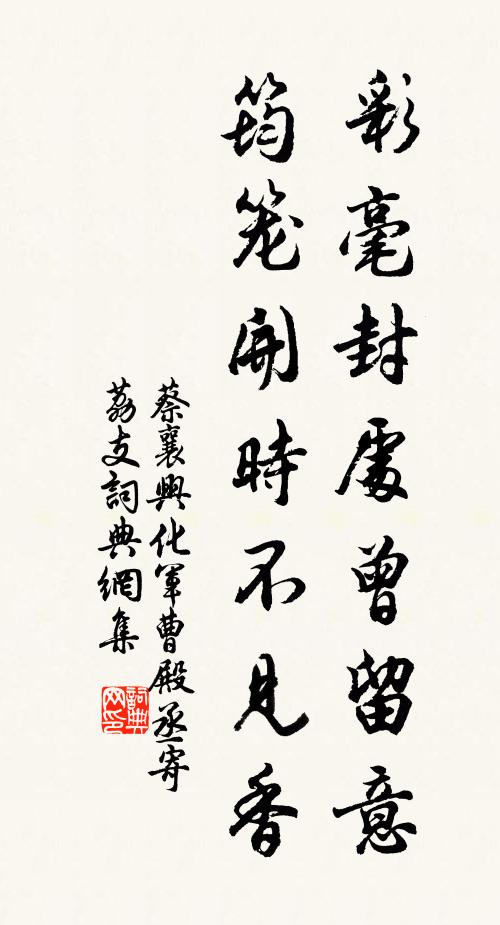 彩毫封處曾留意
筠笼開時不見香
蔡襄興化軍曹殿丞寄
荔支詞典網集
詞典网印